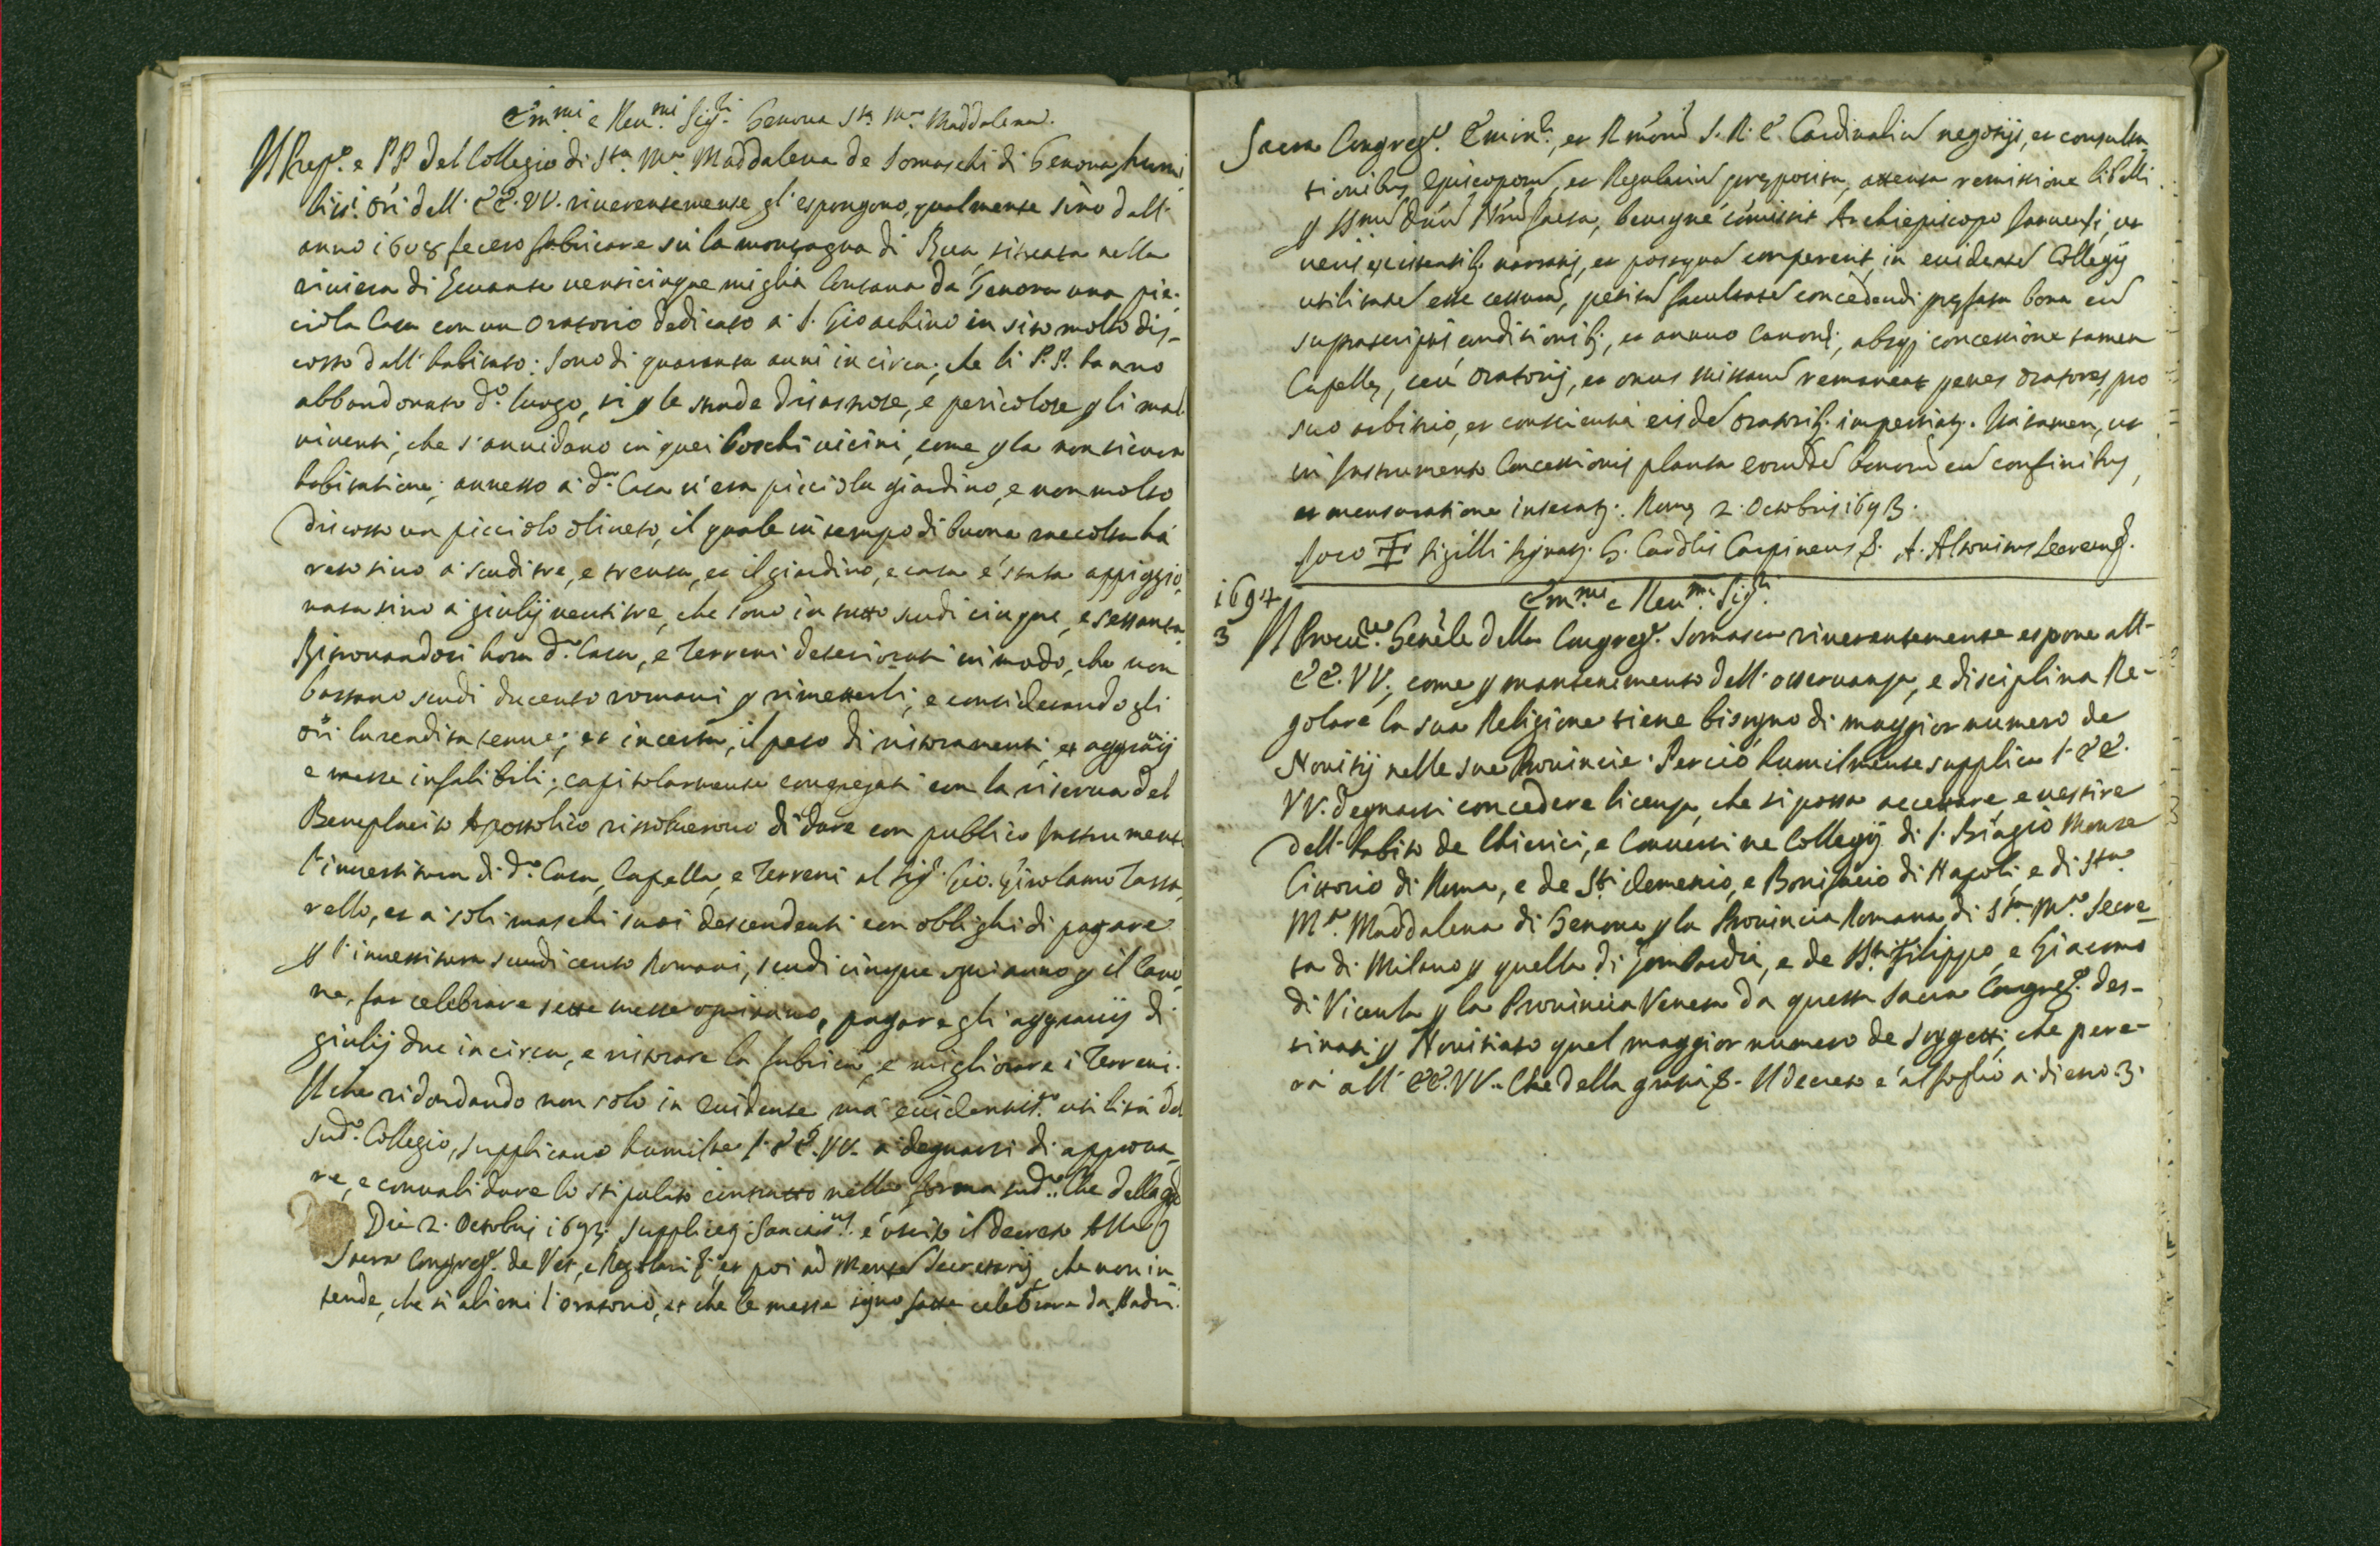 Em.mi e Reu.mi Sig.ri Genoua S.ta M.a Maddalena.
Il Prep.o e PP. del Collegio di S.ta M.a Maddalena de Somaschi di Genoua humi
liss.i ori dell' EE. VV. riuerentemente gl'espongono, qualmente sino dall'
anno 1608 fecero fabricare sù la montagna di Rua, situata nella
riuiera di Leuante uenticinque miglia lontana da Genoua una pic-
ciola Casa con un Oratorio dedicato a' S. Gioachino in sito molto dis-
costo dall' habitato: sono di quaranta anni in circa, che li P.P. hanno
abbandonato d.o luogo, sì p le strade disastrose, e pericolose p li mal
uiuenti, che s'annidano in quei boschi uicini, come p la non sicura
habitatione; annesso a' d.a Casa u'era picciolo giardino, e non molto
discosto un picciolo oliueto, il quale in tempo di buona raccolta hà
reso sino a' scudi tre, e trenta, et il giardino, e casa è stata appiggio,
nata sino a' giulij uentitre, che sono in tutto scudi cinque, e sessanta.
Ritrouandosi hora d.a Casa, e Terreni deteriorati in modo, che non
bastano scudi ducento romani p rimetterli, e considerando gli
ori la rendita tenue, et incerta, il peso di ristoramenti, et aggrauij
e messe infalibili; capitolarmente congregati con la riserua del
Beneplacito Apostolico rissoluerono di dare con publico Instrumento
l'inuestitura di d.a Casa, Capella, e Terreni al Sig.r Gio. Girolamo Tassa,
rello, et a' soli maschi suoi descendenti con oblighi di pagare
p l'inuestitura scudi cento Romani, scudi cinque ogni anno p il Cano,
ne, far celebrare sette messe ogni anno, pagare gli aggrauij di
giulij due in circa, e ristorare la fabrica, e migliorare i Terreni.
Il che ridondando non solo in euidente, mà euidentiss.a utilità del
Sud.o Collegio, supplicano humilte l' EE. VV. a' degnarsi di approua-
re, e conualidare lo stipulato contratto nella forma sud.a Che della
Die 2. Octobris 1693. è uscito il decreto Alla
Sacra Congreg.e de Vesc. e Regolari et poi ad Secretarij, che non in
tende, che si alieni l'oratorio, et che le messe siano fatte celebrare da Padri.
Sacra Congreg.o Emin. et Rmorū S. R. E. Cardinaliū negotijs, et consulta
tionibus Episcoporū, et Regulariū preposita, attenta remissione libelli
p SSmū Dnū Nrū facta, benigne comisit Archiepiscopo Januensi, ut
ueris existentib. narratis, et postquā compererit, in euidentē Collegij
utilitatē esse cessurā, petitā facultatē concedendi prefata bona cū
suprascriptis conditionib., et annuo Canone, absq; concessione tamen
Capelle, ceu Oratorij, et onus missarū remaneat penes oratores, pro
suo arbitrio, et conscientia eisdē oratorib. impertiatur. Ita tamen, ut
in Instrumento Concessionis planta eorundē bonorū cū confinibus,
et mensuratione inseratur. Rome 2. Octobris 1693.
Loco ✠ sigilli G. Card.lis Carpineus &. A. Altouitus Secret.
1694 Em.mi e Reu.mi Sig.ri
3 Il Procu.re Gen̄ele della Congreg.e Somasca riuerentemente espone all'
EE. VV., come p mantenimento dell' osseruanza, e disciplina Re-
golare la sua Religione tiene bisogno di maggior numero de
Nouitij nelle sue Prouincie. Perciò humilmente supplica l' EE.
VV. degnarsi concedere licenza, che si possa accettare, e uestire
dell' habito de Chierici, e Conuersi ne Collegij di S. Biagio Monte
Cittorio di Roma, e de S.ti Demetrio, e Bonifacio di Napoli, e di S.ta
M.a Maddalena di Genoua p la Prouincia Romana di S.ta M.a Secre-
ta di Milano p quella di Lombardia, e de Sti Filippo, e Giacomo
di Vicenza p la Prouincia Veneta da questa Sacra Congreg.e des-
tinati p Nouitiato quel maggior numero de soggetti, che pare-
rà all' EE. VV. Che della gratia &. Il decreto è al foglio a' di esso 3.